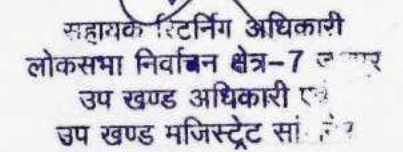 सहायक रिटर्निंग अधिकारी
लोकसभा निर्वाचन क्षेत्र-7
उप खण्ड अधिकारी एवं
उप खण्ड मजिस्ट्रेट